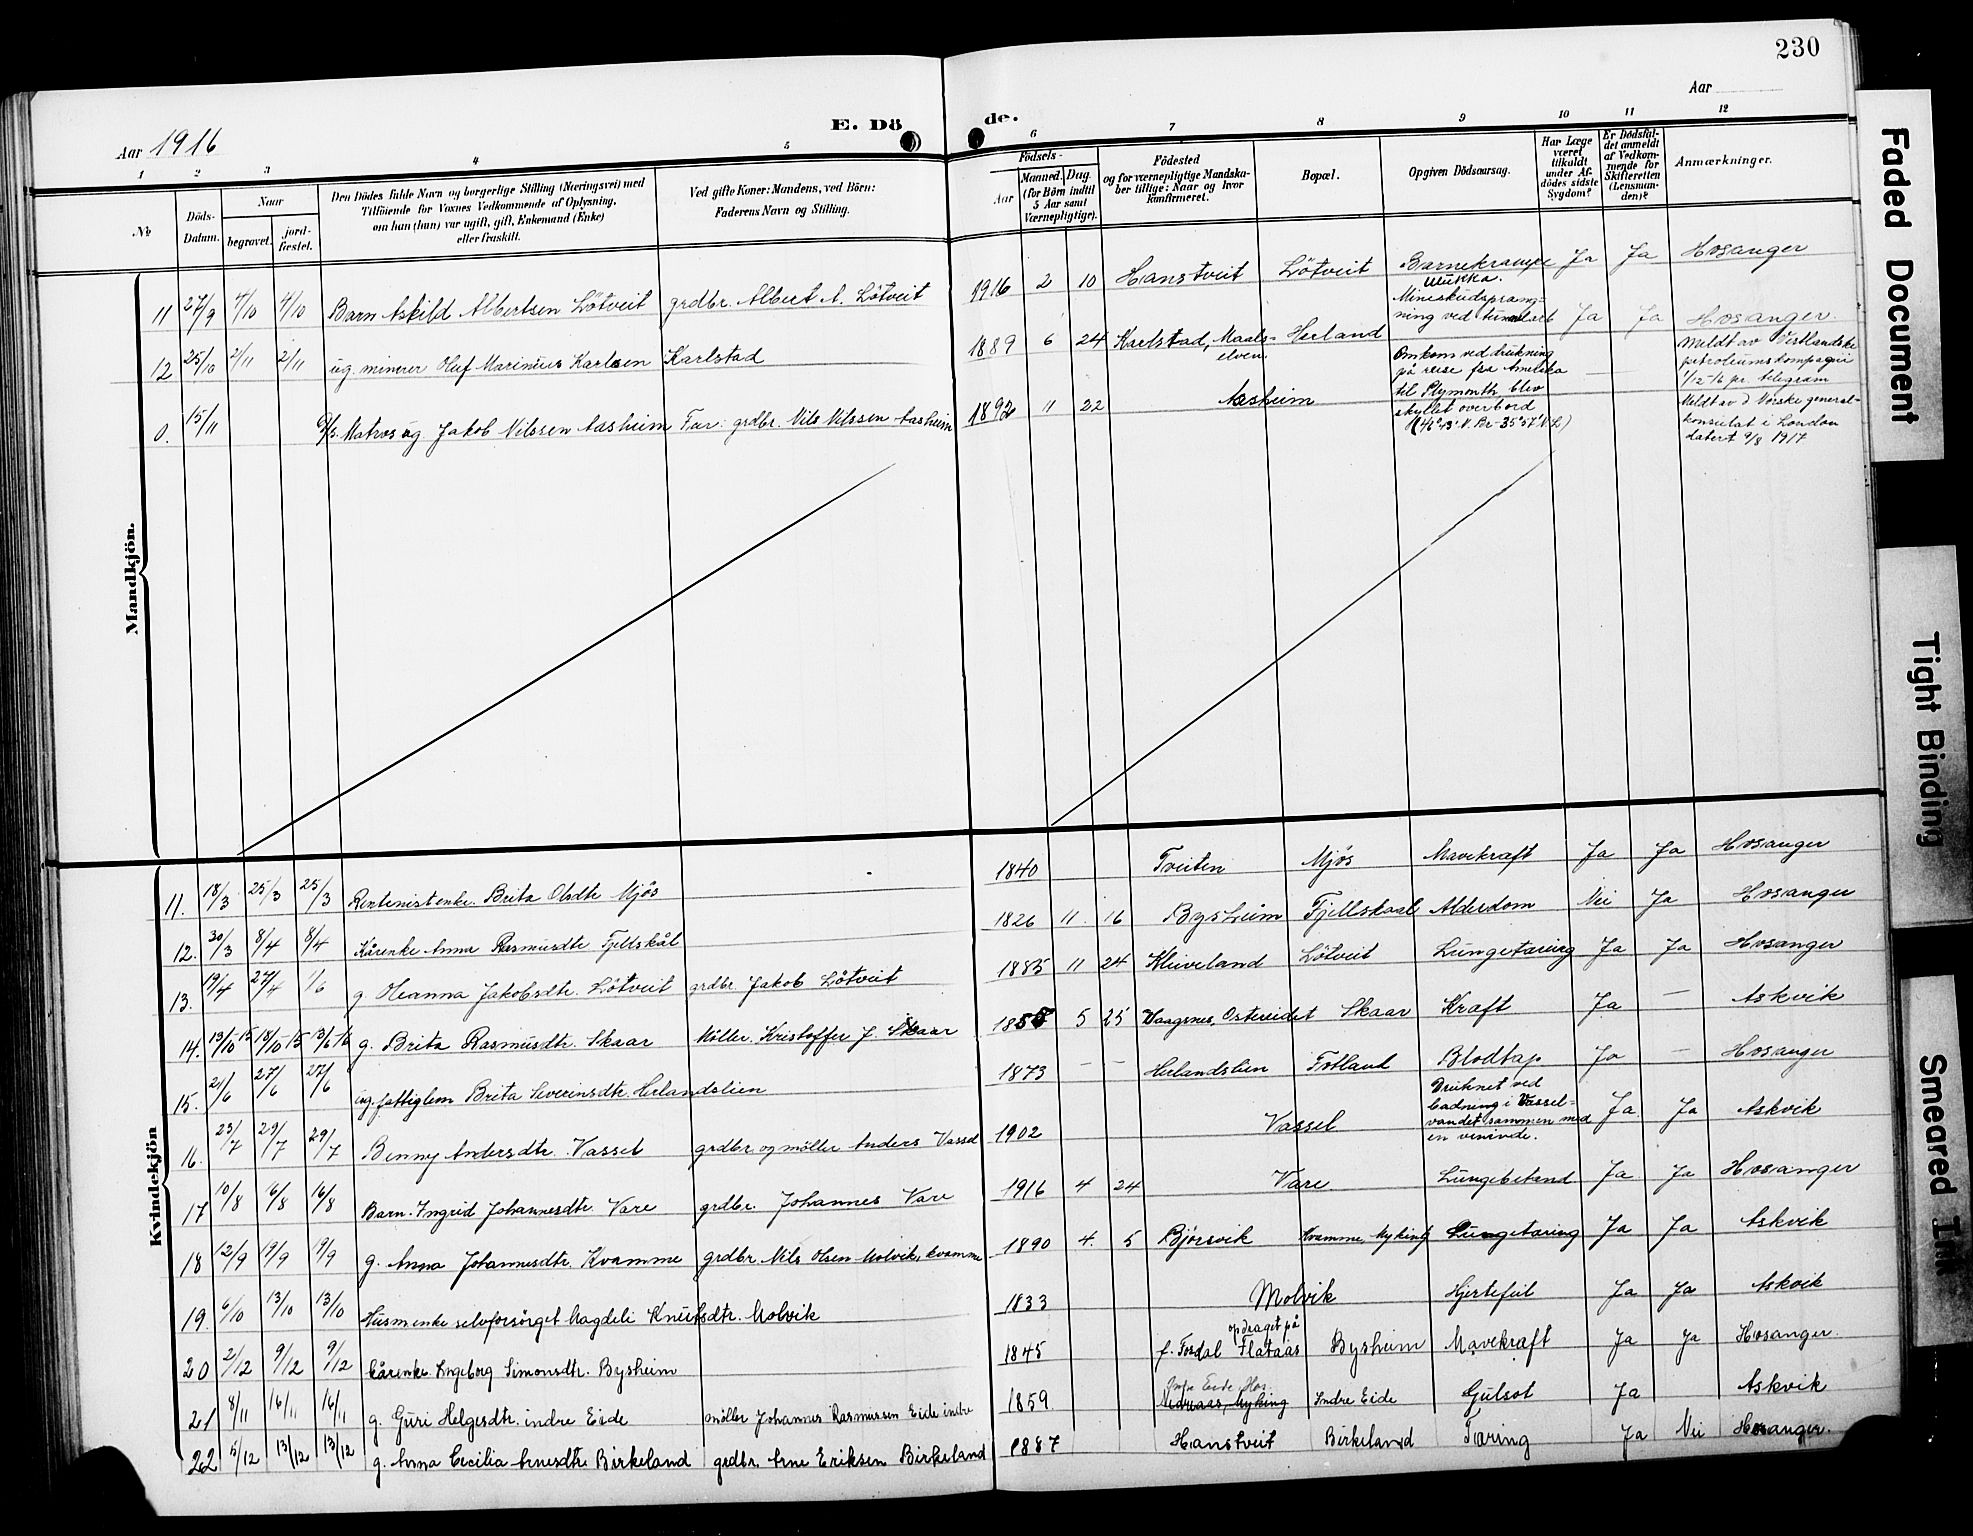 230
Aar
Aar 1916
E. Döde.
1 2 3 4 5 6 7 8 9 10 11 12
No
Döds-Datum.
Naar
begravet.
jord-fæstet.
Den Dödes fulde Navn og borgerlige Stilling (Næringsvei) med
Tilföiende for Voxnes Vedkommende af Oplysning,
om han (hun) var ugift, gift, Enkemand (Enke)
eller fraskilt.
Ved gifte Koner: Mandens, ved Börn:
Faderens Navn og Stilling.
Födsels-
Aar
Maaned. Dag.
(for Börn indtil
5 Aar samt
Værnepligtige).
Födested
og for værnepligtige Mandska-
ber tillige: Naar og hvor
konfirmeret.
Bopæl.
Opgiven Dödsaarsag.
Har Læge
været
tilkaldt
under Af-
dödes sidste
Sygdom?
Er Dödsfal-
det anmeldt
af Vedkom-
mende for
Skifteretten
(Lensman-
den)?
Anmærkninger.
Mandkjön.
11 27/9 4/10 4/10 Barn Askild Albertsen Lötveit grdbr. Albert A. Lötveit 1916 2 10 Hanstveit Lötveit Barnekrampe Ja Ja Hosanger
12 25/10 2/11 2/11 ug. minerer Oluf Marinius Karlsen Karlstad 1889 6 24 Karlstad, Maals-
elven. Herland Mineskudspræng-
ning ved tunelarb Ja Ja Hosanger.
0. 15/11 Matros ug. Jakob Nilssen Aasheim Far: grdbr. Nils Nilssen Aasheim 1892 11 22 Aasheim Omkom ved drukning
på reise fra Amerika
til Plymouth, blev
skyllet overbord
Meldt av Vestlandske
petroliumskompagni
1/12-16 pr. telegram
Meldt av d Norske general-
konsulat i London
datert 9/8 1917
Kvindekjön
11. 18/3 25/3 25/3 Rentenistenke. Brita Olsdtr Mjös 1840 Tveiten Mjös Mavekræft Ja Ja Hosanger
12. 30/3 8/4 8/4 Kårenke Anna Rasmusdtr Fjellskål 1826 11 16 Bysheim Fjellskaal Alderdom Nei Ja Hosanger
13. 19/4 27/4 1/6 g. Oleanna Jakobsdtr. Lötveit grdbr. Jakob Lötveit 1885 11 24 Kleiveland Lötveit Lungetæring Ja Ja Hosanger
14. 13/10 15 18/10-15 13/6 16 g. Brita Rasmusdtr. Skaar Möller. Kristoffer J. Skaar 1858 5 25 Vaagenes, Ostereidet Skaar Kræft Ja — Askvik
15. 21/6 27/6 27/6 ug. fattiglem Brita Severinsdtr. Herlandslien 1873 — — Herlandslien Totland Blodtap Ja — Hosanger
16. 23/7 29/7 29/7 Benny Andersdtr. Vassel grdbr. og möller Anders Vassel 1902 Vassel Druknet ved
badning i Vassel-
vandet sammen med
en veninde. Ja Ja Askvik
17 10/8 16/8 16/8 Barn. Ingrid Johannesdtr. Vare grdbr. Johannes Vare 1916 4 24 Vare Lungebetænd Ja Ja Hosanger
18 12/9 19/9 19/9 g. Anna Johannesdtr. Kvamme grdbr. Nils Olsen Molvik, kvamme 1890 4. 5 Bjørsvik Kvamme, Myking Lungetæring Ja Ja Askvik
19. 6/10 13/10 13/10 Husmenke selvforsörget Magdeli Knutsdtr. Molvik 1833 Molvik Hjertefeil Ja Ja Askvik
20 2/12 9/12 9/12 kårenke Ingeborg Simonsdtr. Bysheim 1845 f. Fosdal opdraget på Flataas Bysheim Mavekræft Ja Ja Hosanger.
21 8/11 16/11 16/11 g. Guri Helgesdtr. indre Eide möller Johannes Rasmussen Eide indre 1859. Indre Eide Gulsot Ja Askvik
22 5/12 13/12 13/12 g. Anna Cecilia Arnesdtr Birkeland grdbr. Arne Eriksen Birkeland 1887 Hanstveit Birkeland Tæring Ja Nei Hosanger.
Faded Document
Tight Binding
Smeared Ink